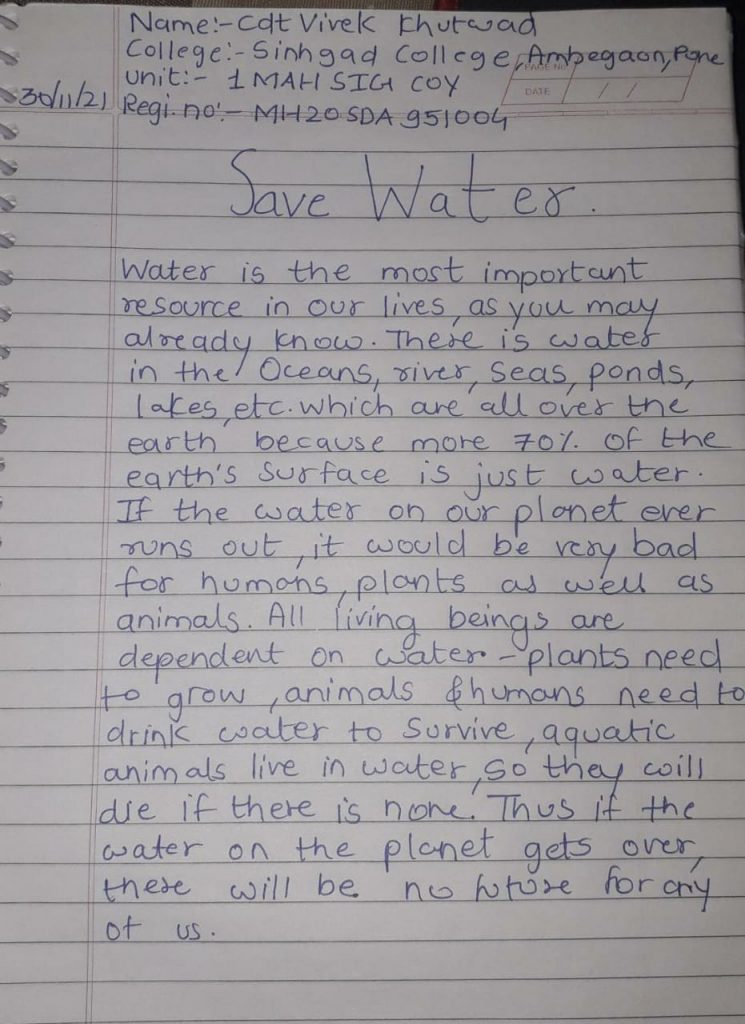 Name:- Cdt Vivek Khutwad
College:- Sinhgad College, Ambegaon, Pune
PAGE NO
unit:- 1 MAH SIG COY
DATE / /
30/11/21 Regi. no:- MH20 SDA 951004
Save Water.
Water is the most important
resource in our lives, as you may
already know. There is water
in the Oceans, river, seas, ponds,
lakes, etc. which are all over the
earth because more 70% of the
earth's surface is just water.
If the water on our planet ever
runs out, it would be very bad
for humans, plants as well as
animals. All living beings are
dependent on water - plants need
to grow, animals & humans need to
drink water to survive, aquatic
animals live in water, so they will
die if there is none. Thus if the
water on the planet gets over,
there will be no future for any
of us.